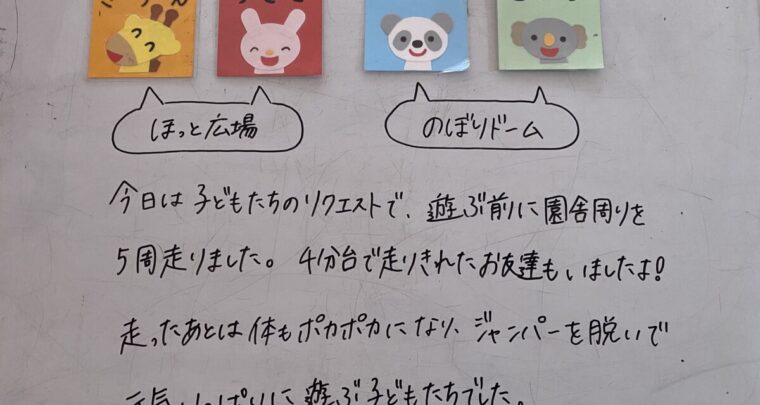 ほっと広場 のぼりドーム
今日は子どもたちのリクエストで、遊ぶ前に園舎周りを
5周走りました。4分台で走りきれたお友達もいましたよ!
走ったあとは体もポカポカになり、ジャンパーを脱いで
元気いっぱいに遊ぶ子どもたちでした。